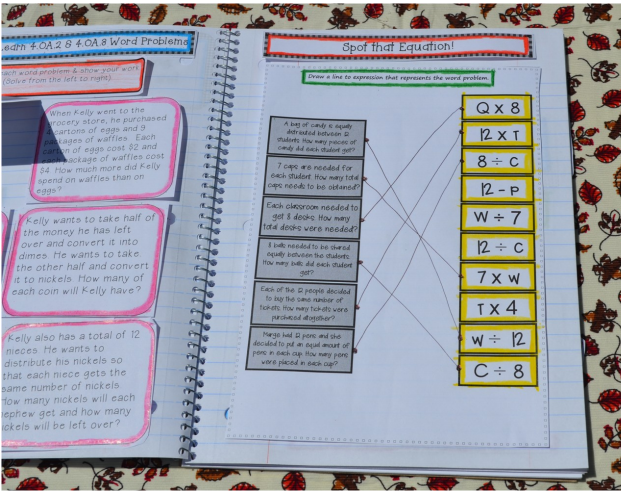 earn 4.OA.2 & 4.OA.3 Word Problems
each word problem & show your work
(Solve from the left to right)
When Kelly went to the
grocery store, he purchased
4 cartons of eggs and 9
packages of waffles. Each
carton of eggs cost $2 and
each package of waffles cost
$4. How much more did Kelly
spend on waffles than on
eggs?
Kelly wants to take half of
the money he has left
over and convert it into
dimes. He wants to take
the other half and convert
it to nickels. How many of
each coin will Kelly have?
Kelly also has a total of 12
nieces. He wants to
distribute his nickels so
that each niece gets the
same number of nickels.
How many nickels will each
nephew get and how many
nickels will be left over?
Spot that Equation!
Draw a line to expression that represents the word problem.
A bag of candy is equally
distributed between 12
students. How many pieces of
candy did each student get?
7 caps are needed for
each student. How many total
caps needs to be obtained?
Each classroom needed to
get 8 desks. How many
total desks were needed?
8 balls needed to be shared
equally between the students.
How many balls did each student
get?
Each of the 12 people decided
to buy the same number of
tickets. How many tickets were
purchased altogether?
Marge had 12 pens and she
decided to put an equal amount of
pens in each cup. How many pens
were placed in each cup?
Q x 8
12 x T
8 ÷ C
12 - P
W ÷ 7
12 ÷ C
7 x W
T x 4
W ÷ 12
C ÷ 8